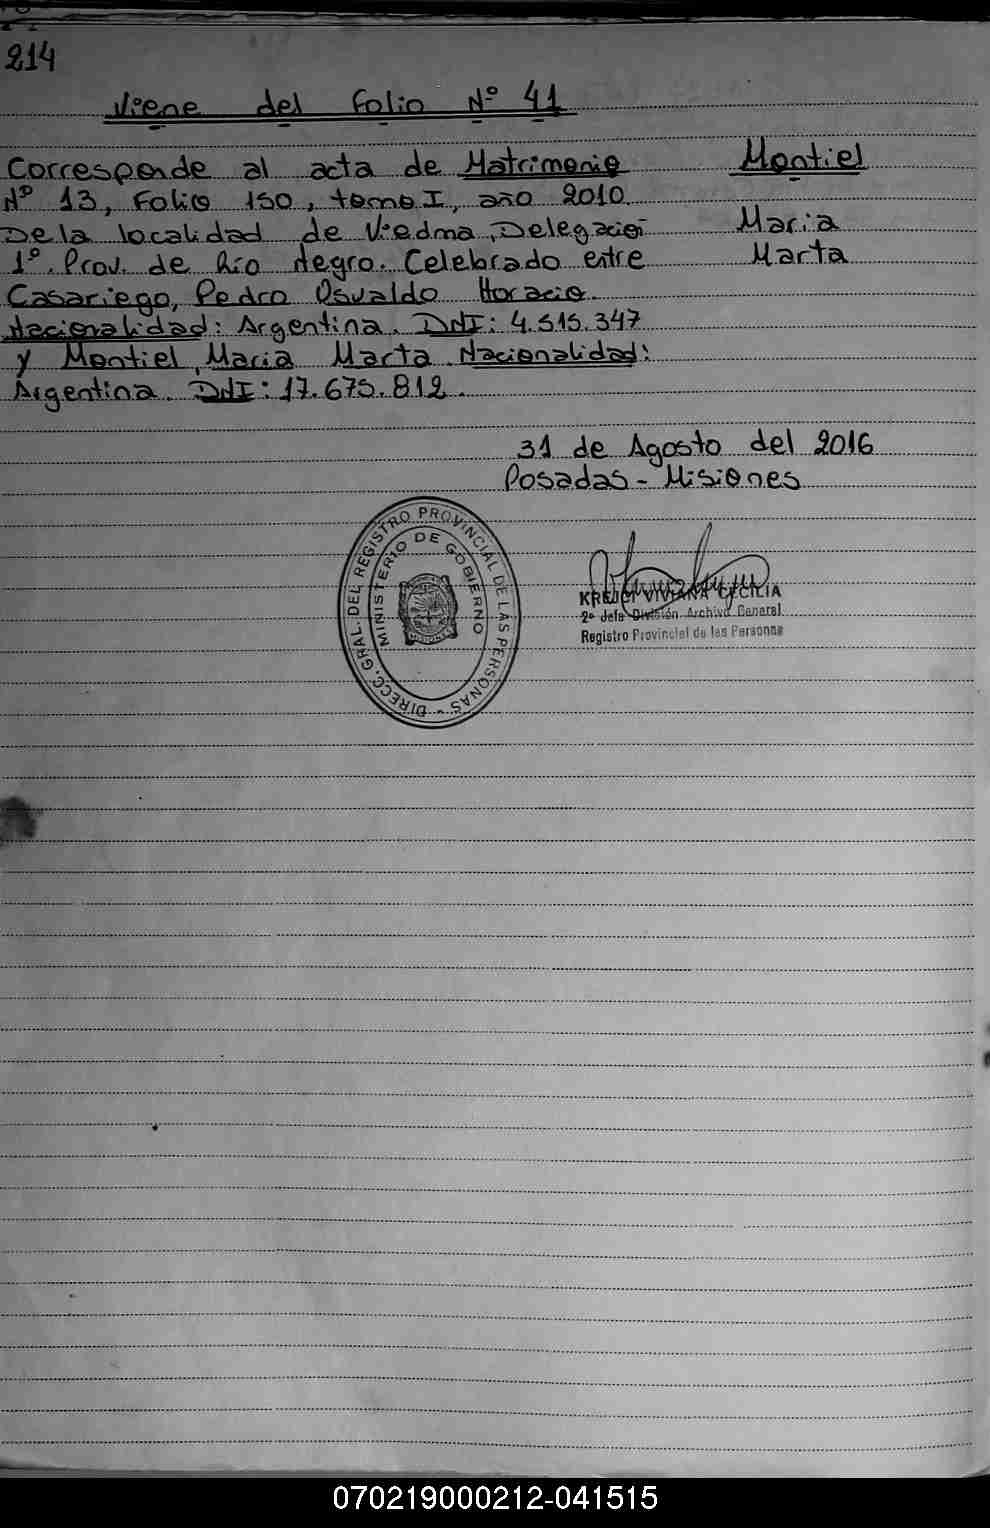 214
Viene del Folio Nº 41
Corresponde al acta de Matrimonio
Nº 13, Folio 150, tomo I, año 2010
De la localidad de Viedma, Delegación
1º. Prov. de Río Negro. Celebrado entre
Casariego, Pedro Osvaldo Horacio.
Nacionalidad: Argentina. DNI: 4.515.347
y Montiel, Maria Marta. Nacionalidad:
Argentina. DNI: 17.675.812.
Montiel
Maria
Marta
31 de Agosto del 2016
Posadas - Misiones
DIRECC. GRAL. DEL REGISTRO PROVINCIAL DE LAS PERSONAS -
MINISTERIO DE GOBIERNO
MISIONES
KREJCI VIVIANA CECILIA
2ª Jefa División Archivo General
Registro Provincial de las Personas
070219000212-041515